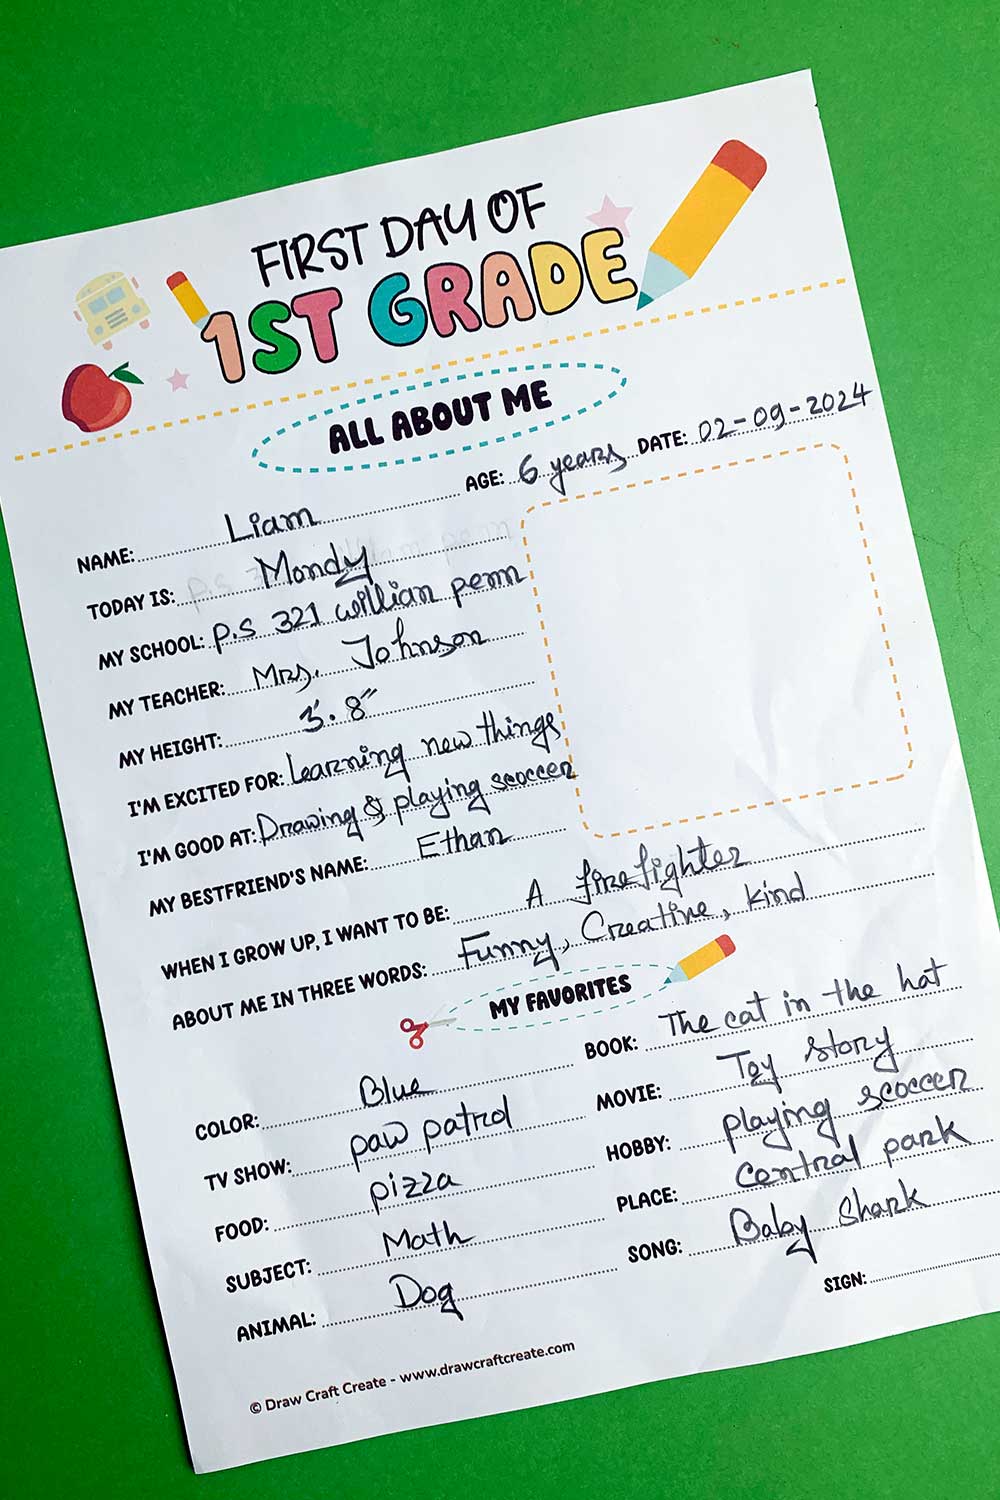 FIRST DAY OF
1ST GRADE
ALL ABOUT ME
NAME: Liam AGE: 6 years DATE: 02-09-2024
TODAY IS: Mondy
MY SCHOOL: p.s 321 willian penn
MY TEACHER: Mrs. Johnson
MY HEIGHT: 3'.8"
I'M EXCITED FOR: Learning new things
I'M GOOD AT: Drawing & playing scoccer
MY BESTFRIEND'S NAME: Ethan
WHEN I GROW UP, I WANT TO BE: A firefighter
ABOUT ME IN THREE WORDS: Funny, Creative, kind
MY FAVORITES
COLOR: Blue BOOK: The cat in the hat
TV SHOW: paw patrol MOVIE: Toy story
FOOD: pizza HOBBY: playing scoccer
SUBJECT: Math PLACE: central park
ANIMAL: Dog SONG: Baby Shark
SIGN:
© Draw Craft Create - www.drawcraftcreate.com